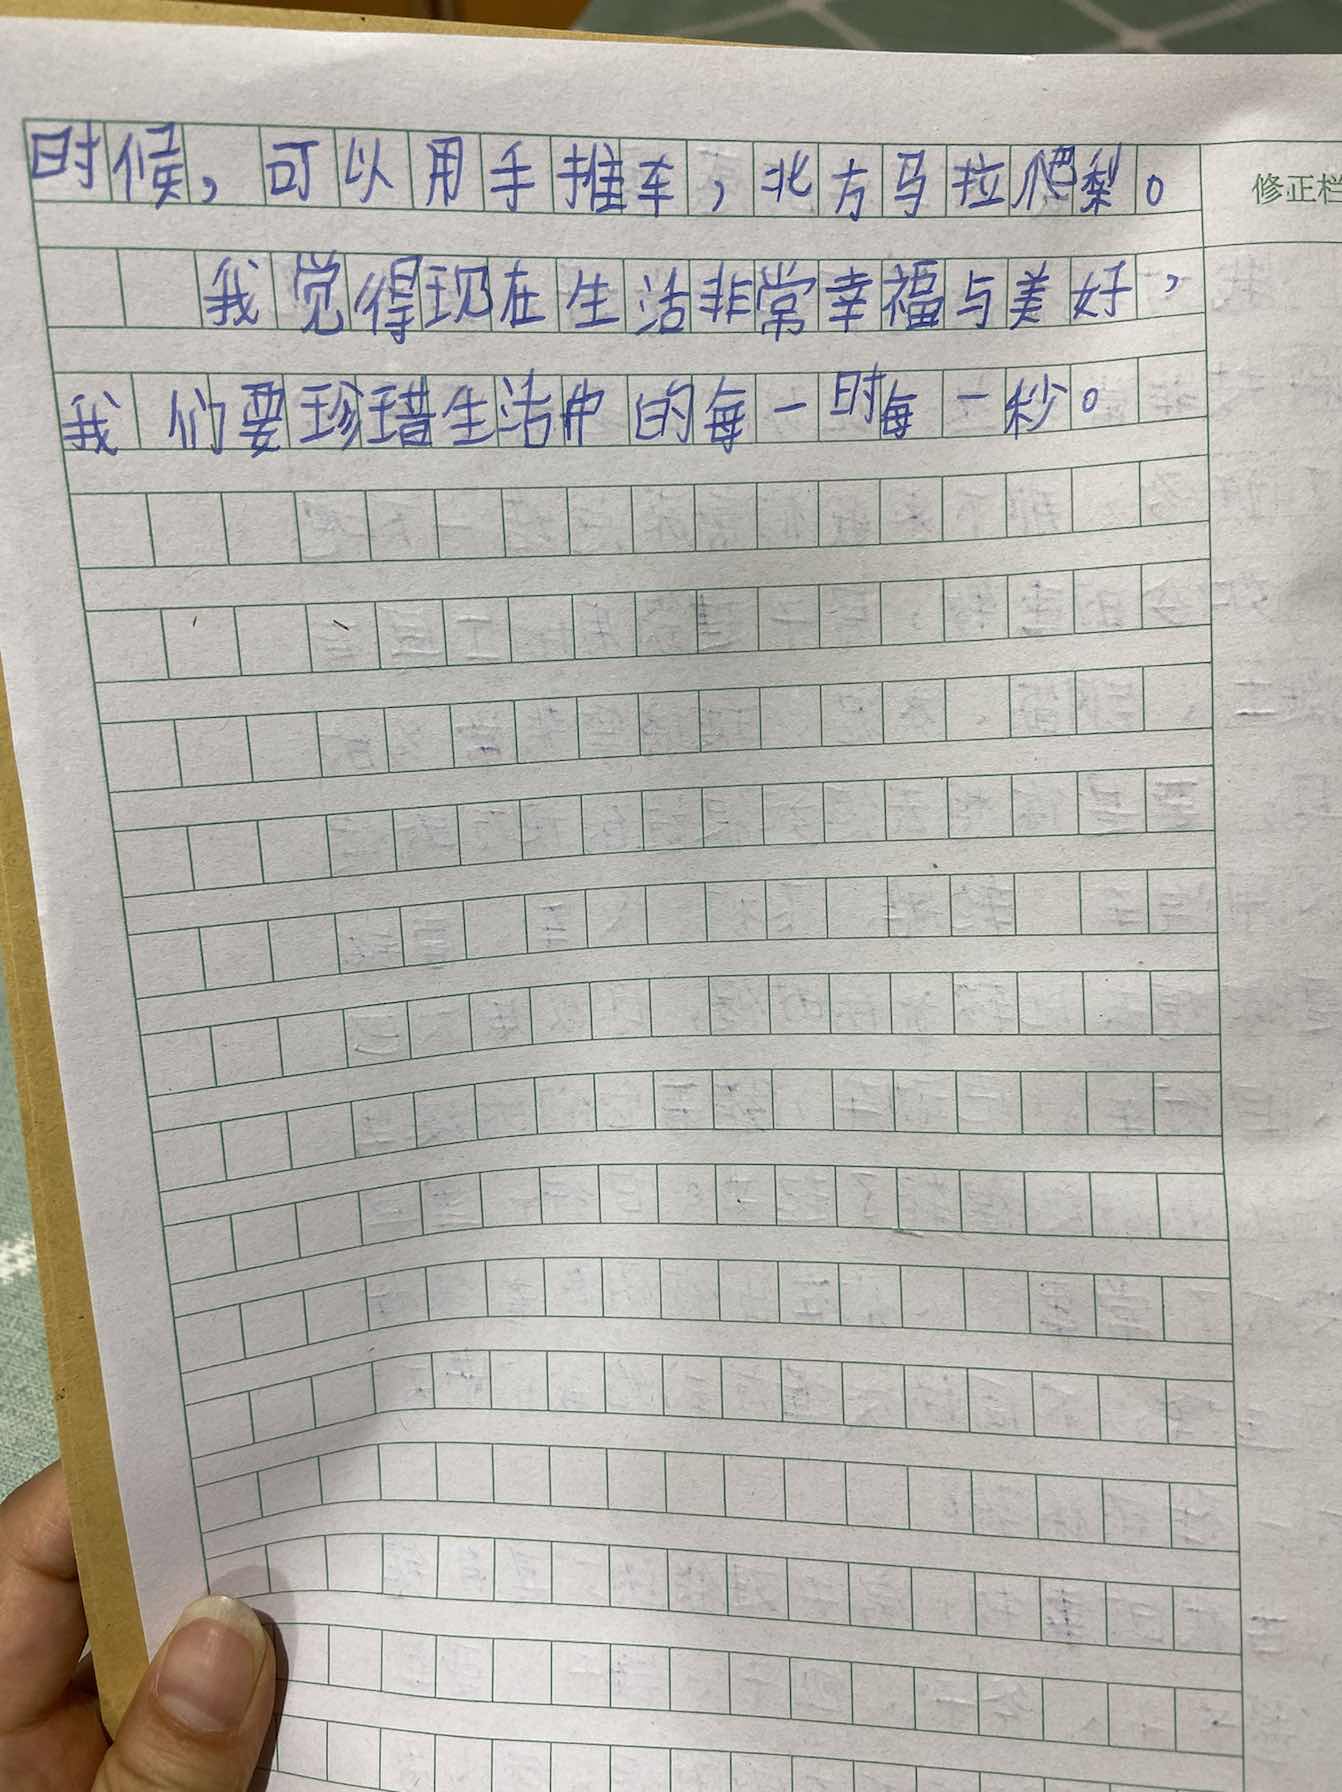 时候，可以用手推车，北方马拉爬犁。
修正栏
我觉得现在生活非常幸福与美好，
我们要珍惜生活中的每一时每一秒。